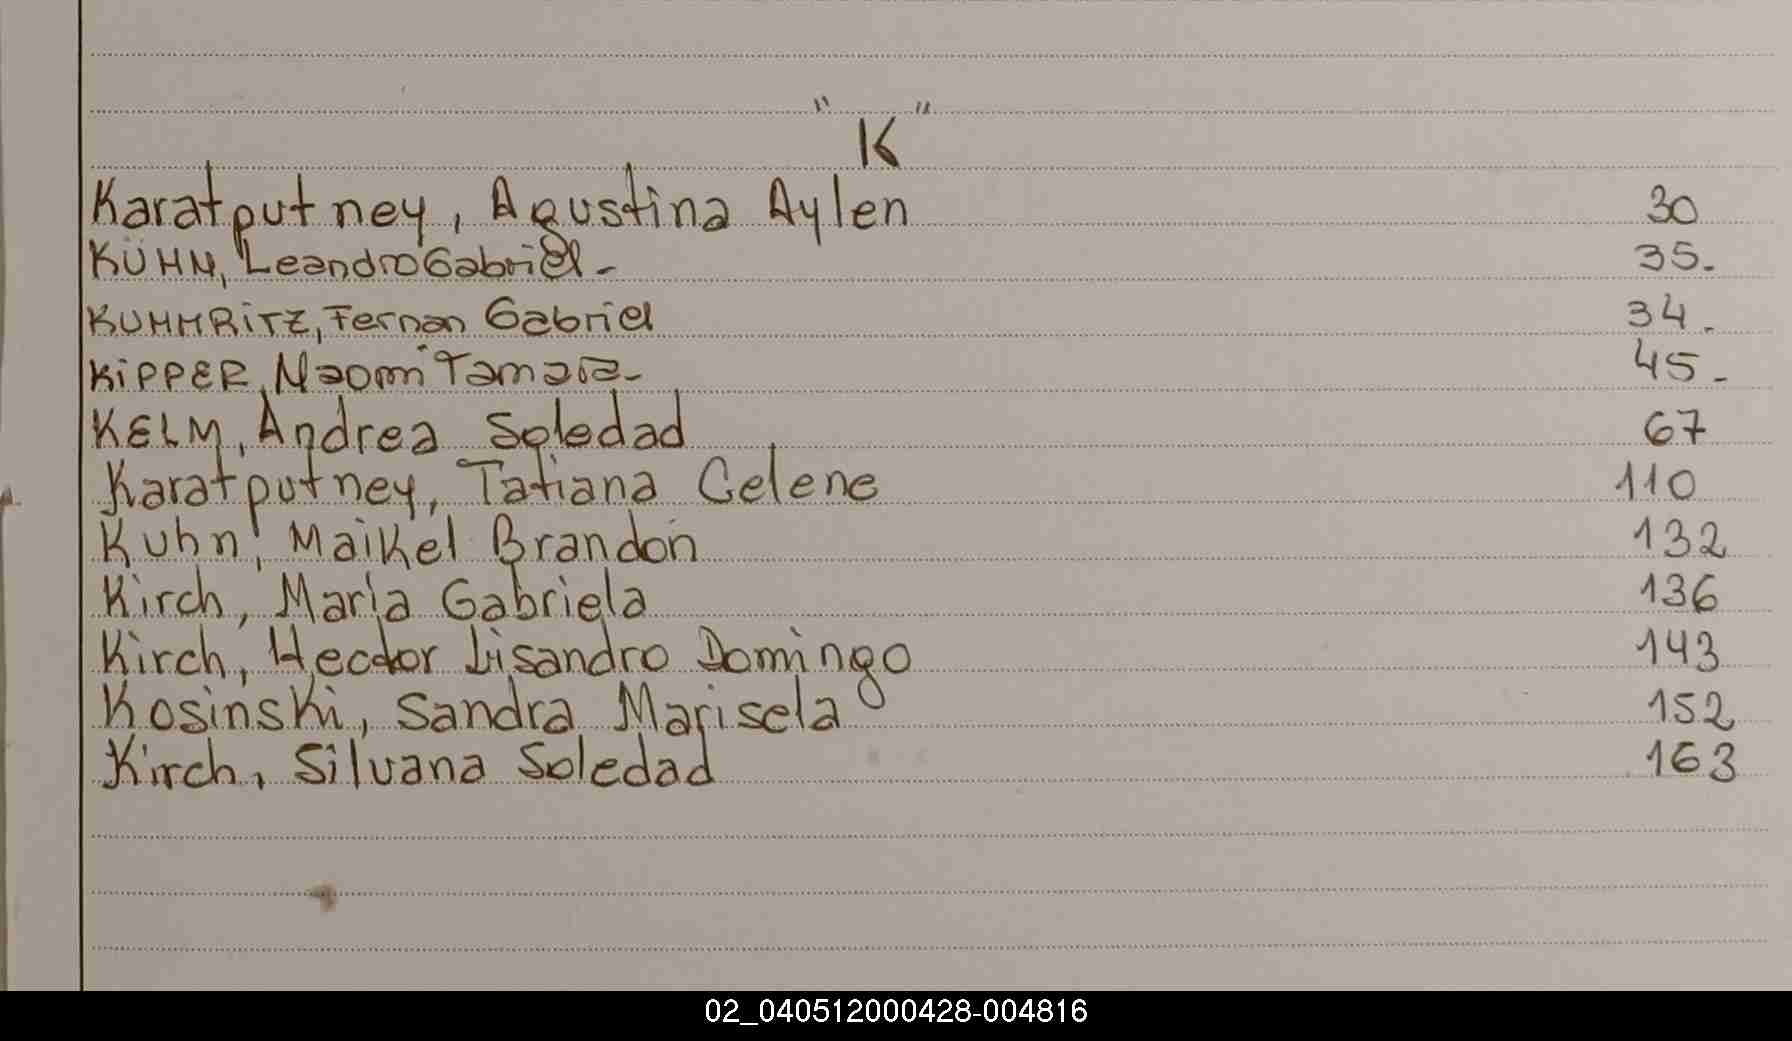 "K"
Karatputney, Agustina Aylen 30
KÜHN, Leandro Gabriel- 35.
KUHMRITZ, Fernan Gabriel 34.
KIPPER, Naomi Tamara- 45-
KELM, Andrea Soledad 67
Karatputney, Tatiana Celene 110
Kuhn, Maikel Brandon 132
Kirch, Maria Gabriela 136
Kirch, Hector Lisandro Domingo 143
Kosinski, Sandra Marisela 152
Kirch, Silvana Soledad 163
02_040512000428-004816